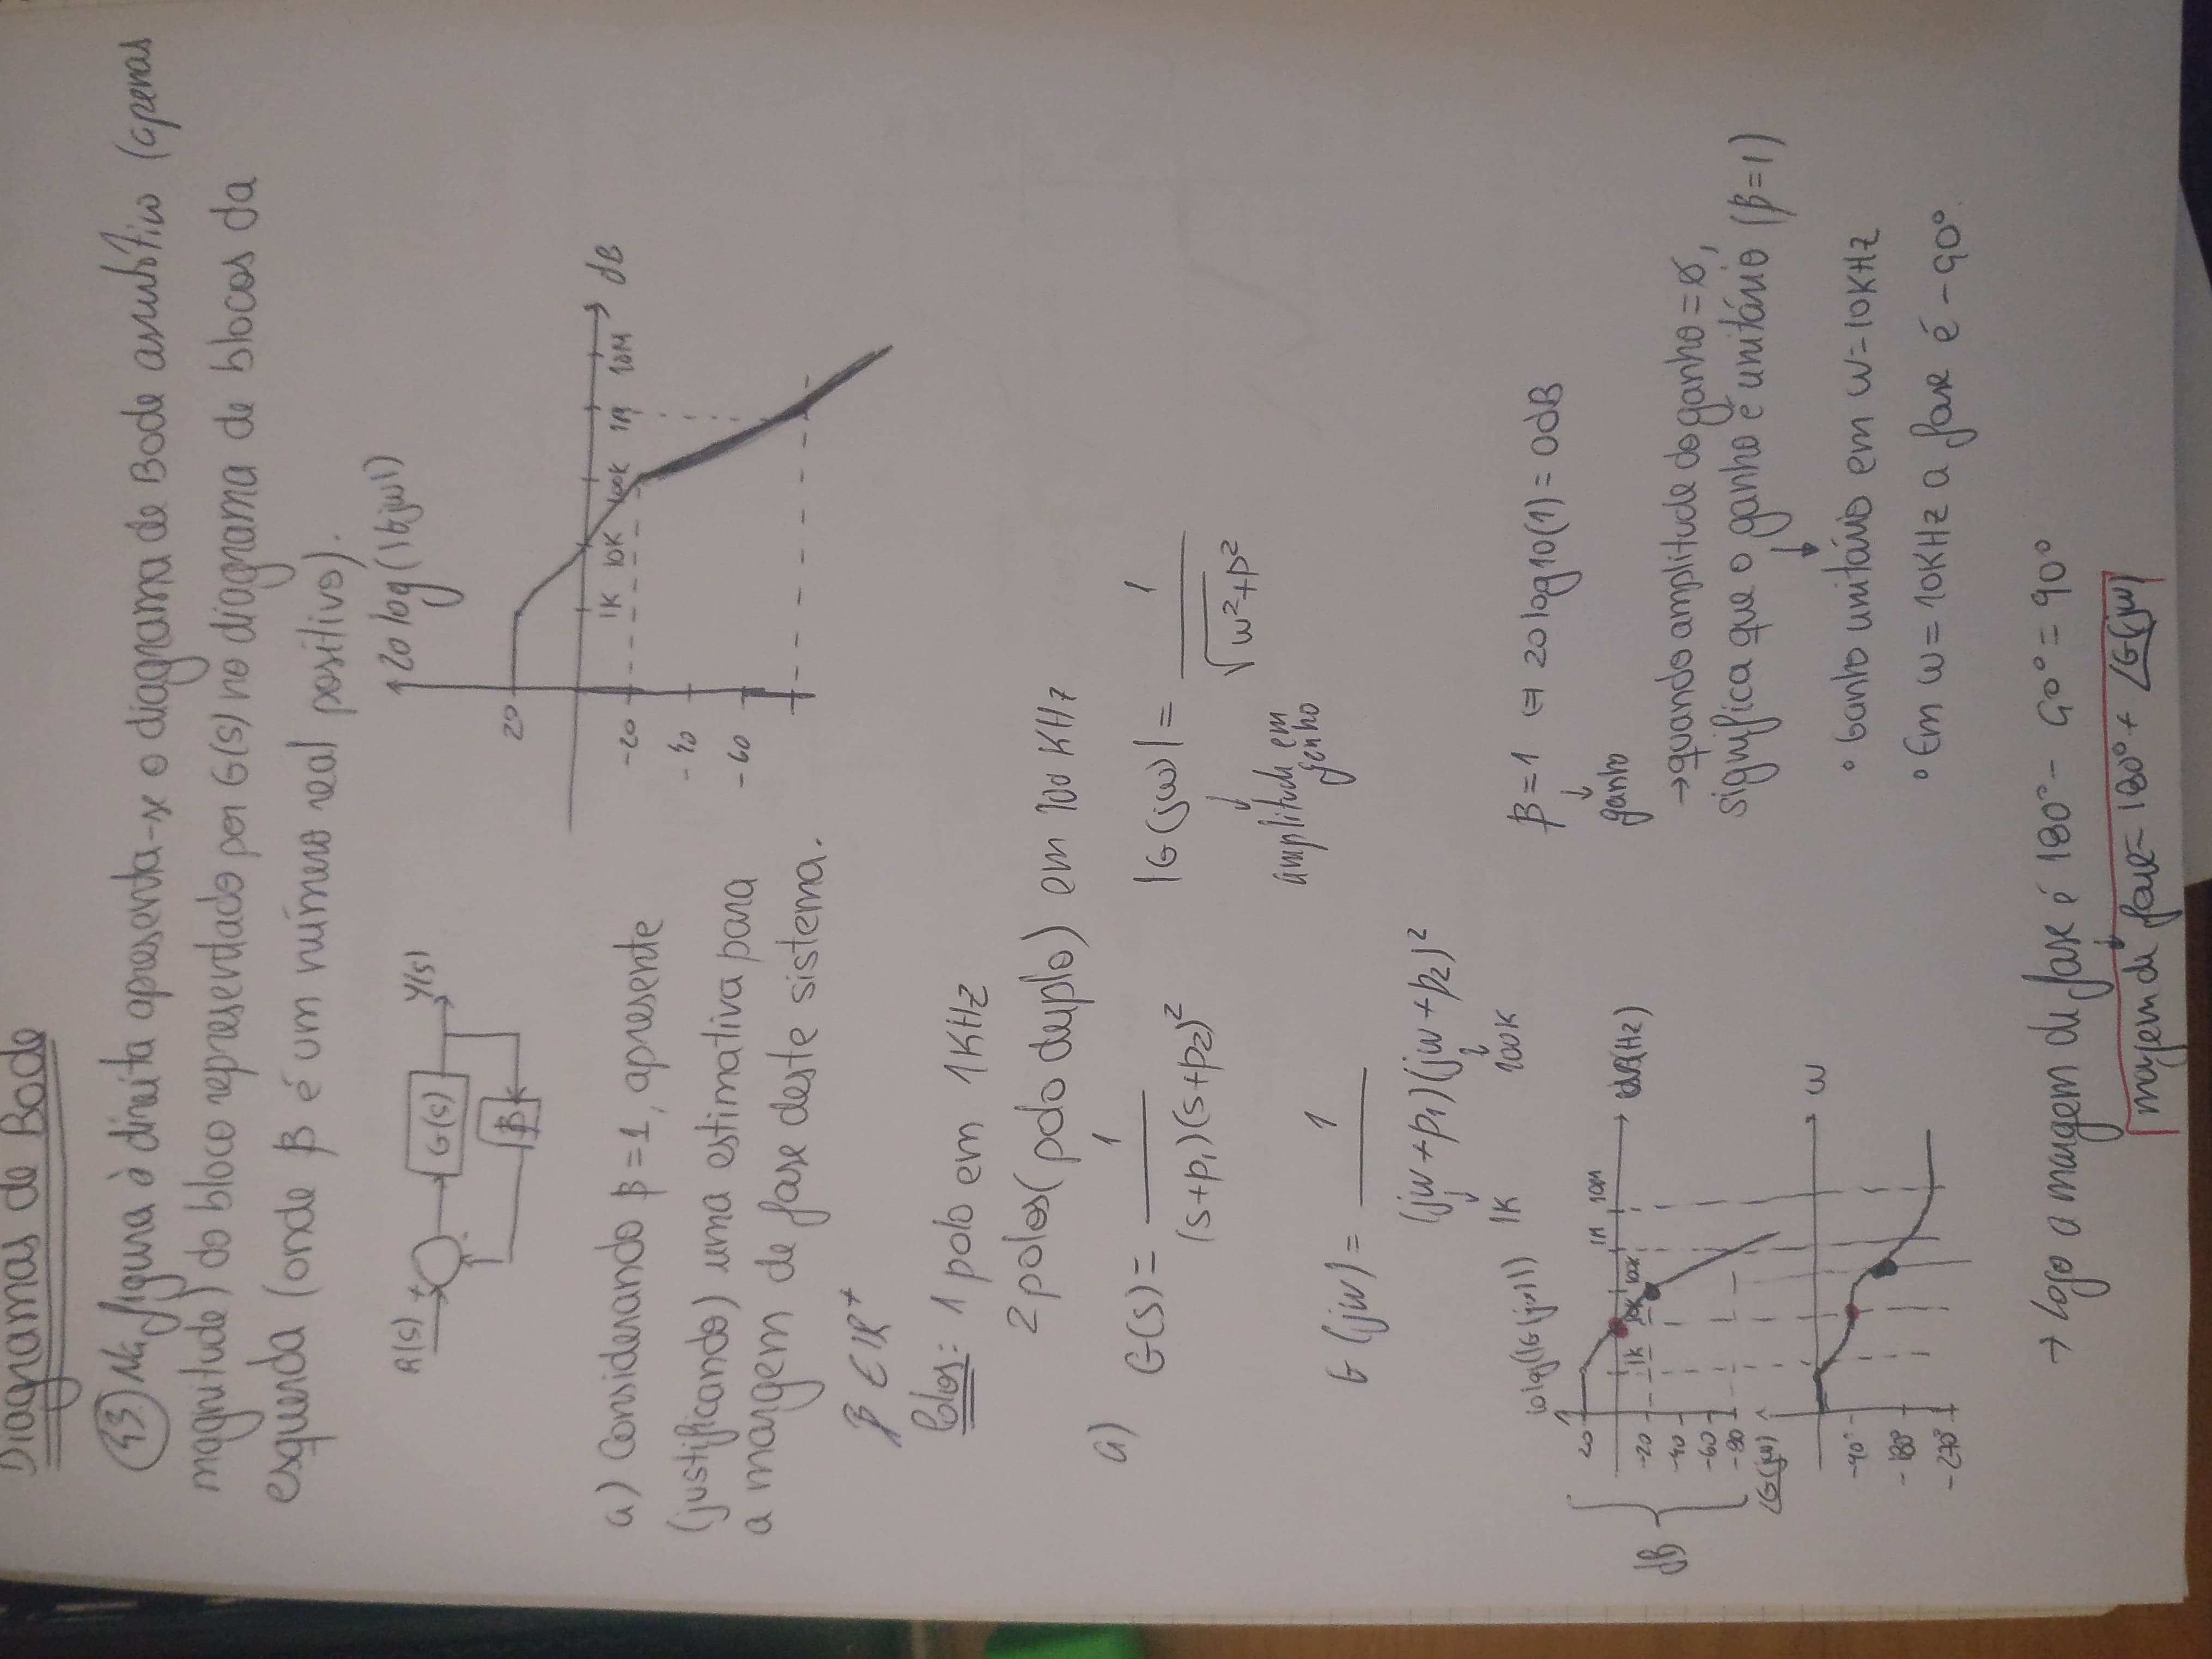 Diagramas de Bode
43. Na figura à direita apresenta-se o diagrama de Bode assintótico (apenas
magnitude) do bloco representado por G(s) no diagrama de blocos da
esquerda (onde β é um número real positivo).
R(s) + G(s) Y(s)
-
β
20 log(|Gjw|)
20
1K 10K 100K 1M 10M dB
-20
-40
-60
a) Considerando β=1, apresente
(justificando) uma estimativa para
a margem de fase deste sistema.
β ∈ IR⁺
Polos: 1 polo em 1KHz
2 polos (polo duplo) em 100 KHz
a) G(s) = 1 / (s+p₁)(s+p₂)²
|G(jω)| = 1 / √ω²+p²
amplitude em
ganho
G(jw) = 1 / (jw+p₁)(jw+p₂)²
1K 100K
β=1 ⇔ 20log10(1) = 0dB
ganho
→ quando amplitude do ganho = ø,
significa que o ganho é unitário (β=1)
• Ganho unitário em ω=10KHz
• Em ω=10KHz a fase é -90°.
log(|G(jw)|)
dB
20
1K 10K 100K 1M 10M (Hz)
-20
-40
-60
-80
∠G(jw)
ω
-90°
-180°
-270°
→ Logo a margem de fase é 180° - 90° = 90°
margem de fase = 180° + ∠G(jw)